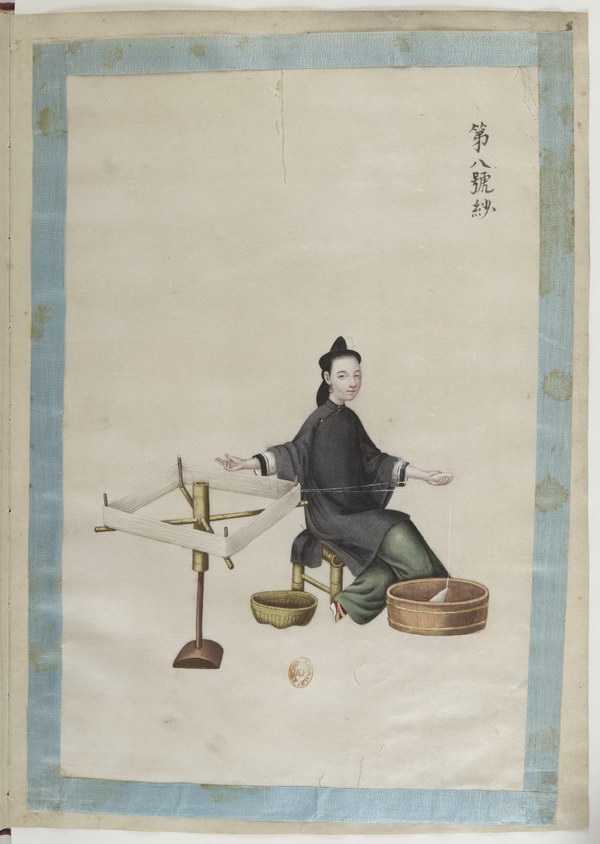 第八號紗